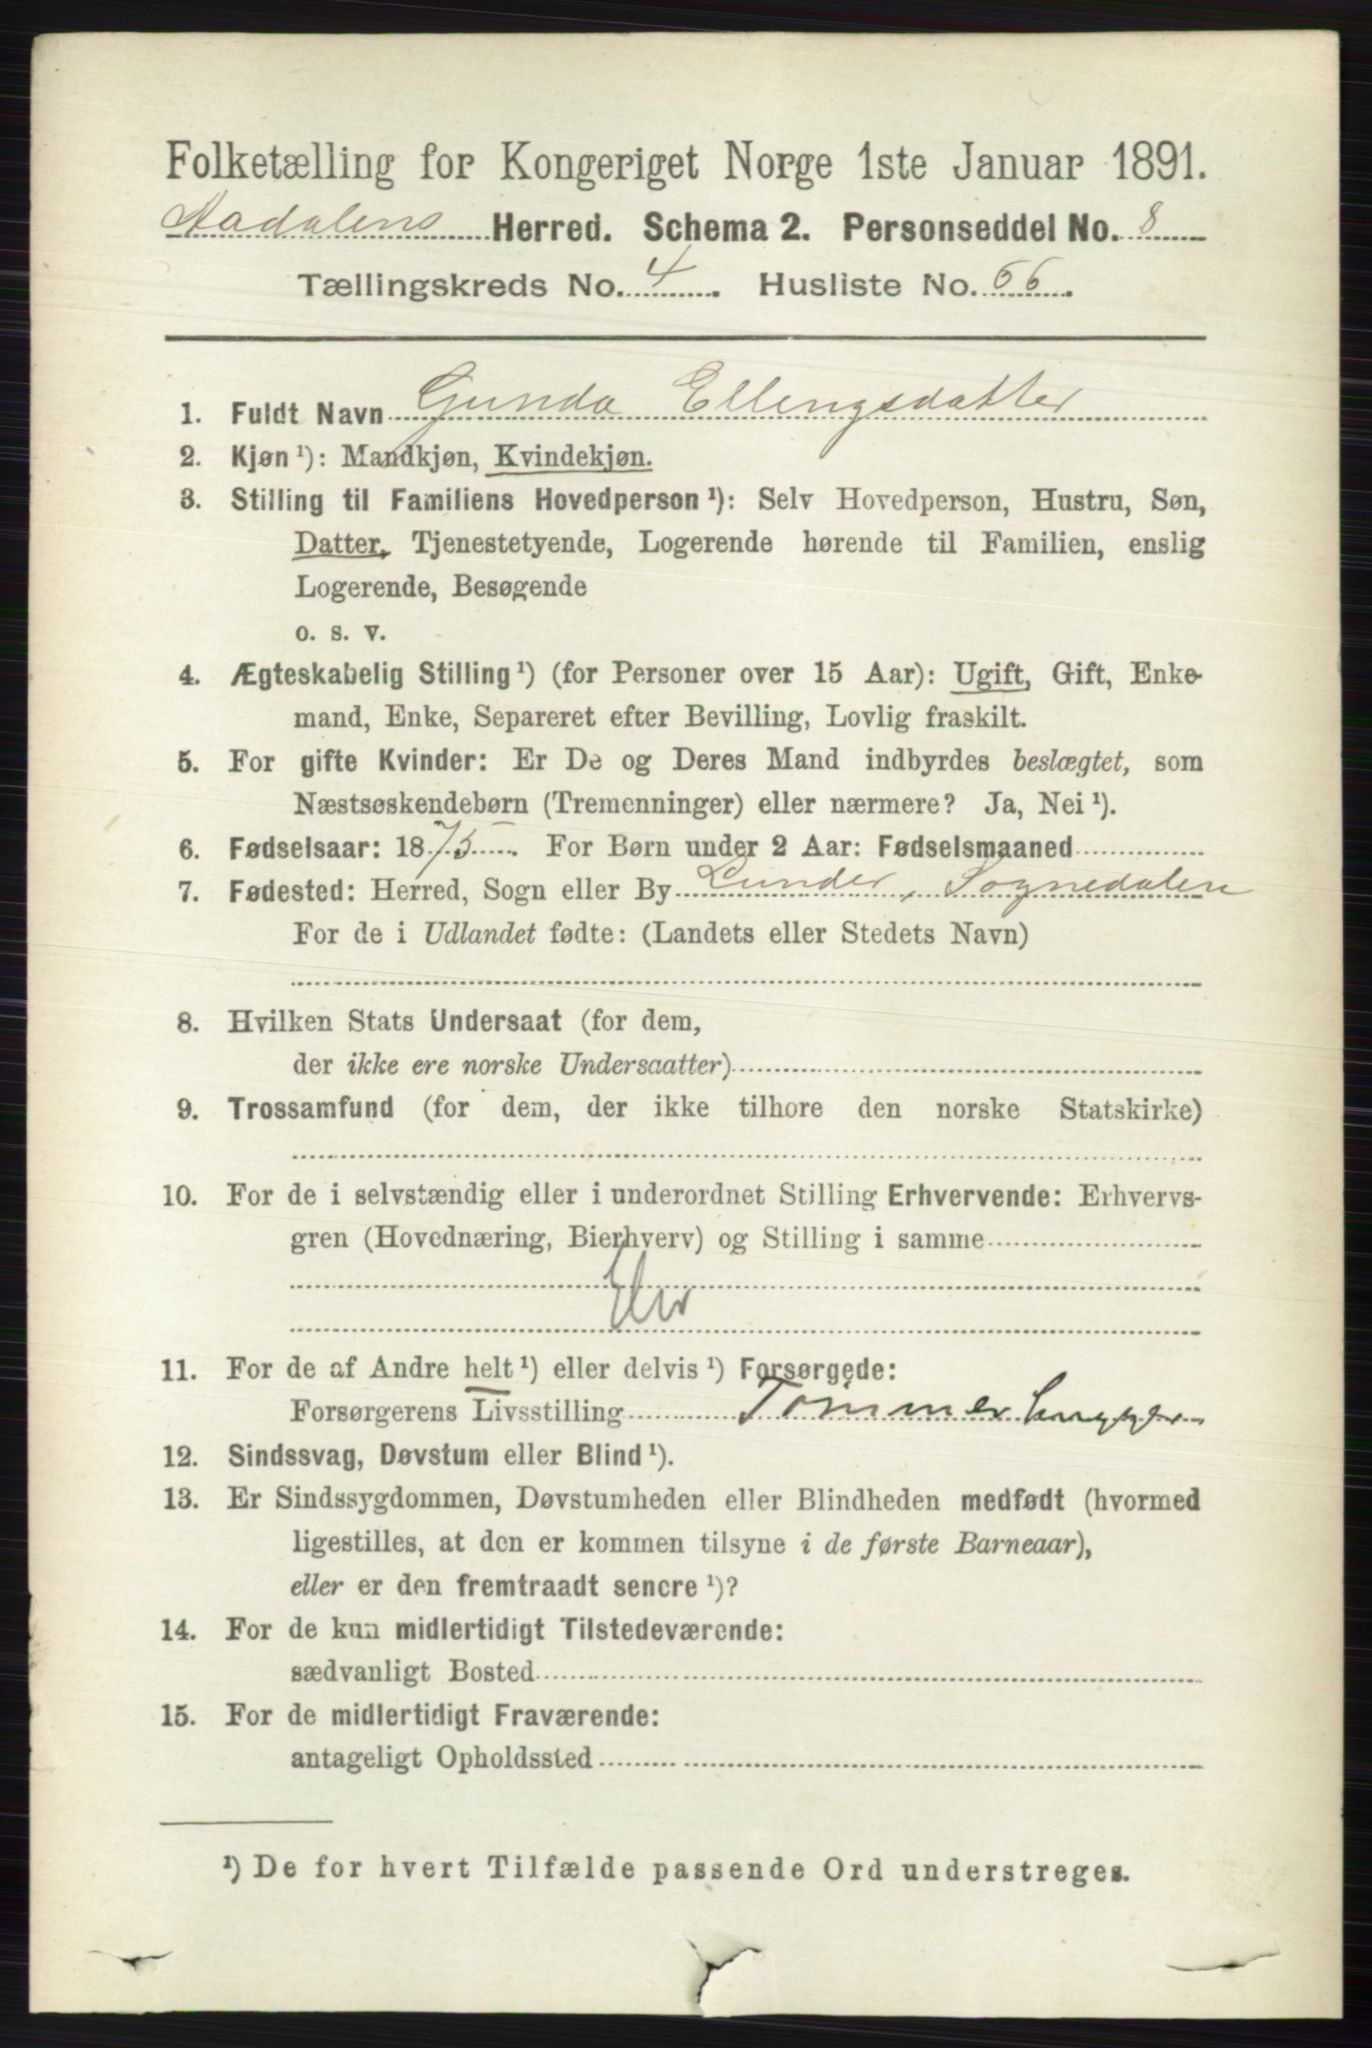 Folketælling for Kongeriget Norge 1ste Januar 1891.
Aadalens Herred. Schema 2. Personseddel No. 8
Tællingskreds No. 4. Husliste No. 66.
1. Fuldt Navn Gunda Ellingsdatter
2. Kjøn ¹): Mandkjøn, Kvindekjøn.
3. Stilling til Familiens Hovedperson ¹): Selv Hovedperson, Hustru, Søn,
Datter, Tjenestetyende, Logerende hørende til Familien, enslig
Logerende, Besøgende
o. s. v.
4. Ægteskabelig Stilling ¹) (for Personer over 15 Aar): Ugift, Gift, Enke-
mand, Enke, Separeret efter Bevilling, Lovlig fraskilt.
5. For gifte Kvinder: Er De og Deres Mand indbyrdes beslægtet, som
Næstsøskendebørn (Tremenninger) eller nærmere? Ja, Nei ¹).
6. Fødselsaar: 1875. For Børn under 2 Aar: Fødselsmaaned
7. Fødested: Herred, Sogn eller By Lunder, Sognedalen
For de i Udlandet fødte: (Landets eller Stedets Navn)
8. Hvilken Stats Undersaat (for dem,
der ikke ere norske Undersaatter)
9. Trossamfund (for dem, der ikke tilhore den norske Statskirke)
10. For de i selvstændig eller i underordnet Stilling Erhvervende: Erhvervs-
gren (Hovednæring, Bierhverv) og Stilling i samme
11. For de af Andre helt ¹) eller delvis ¹) Forsørgede:
Forsørgerens Livsstilling Tømmerhugger
12. Sindssvag, Døvstum eller Blind ¹).
13. Er Sindssygdommen, Døvstumheden eller Blindheden medfødt (hvormed
ligestilles, at den er kommen tilsyne i de første Barneaar),
eller er den fremtraadt senere ¹)?
14. For de kun midlertidigt Tilstedeværende:
sædvanligt Bosted
15. For de midlertidigt Fraværende:
antageligt Opholdssted
¹) De for hvert Tilfælde passende Ord understreges.